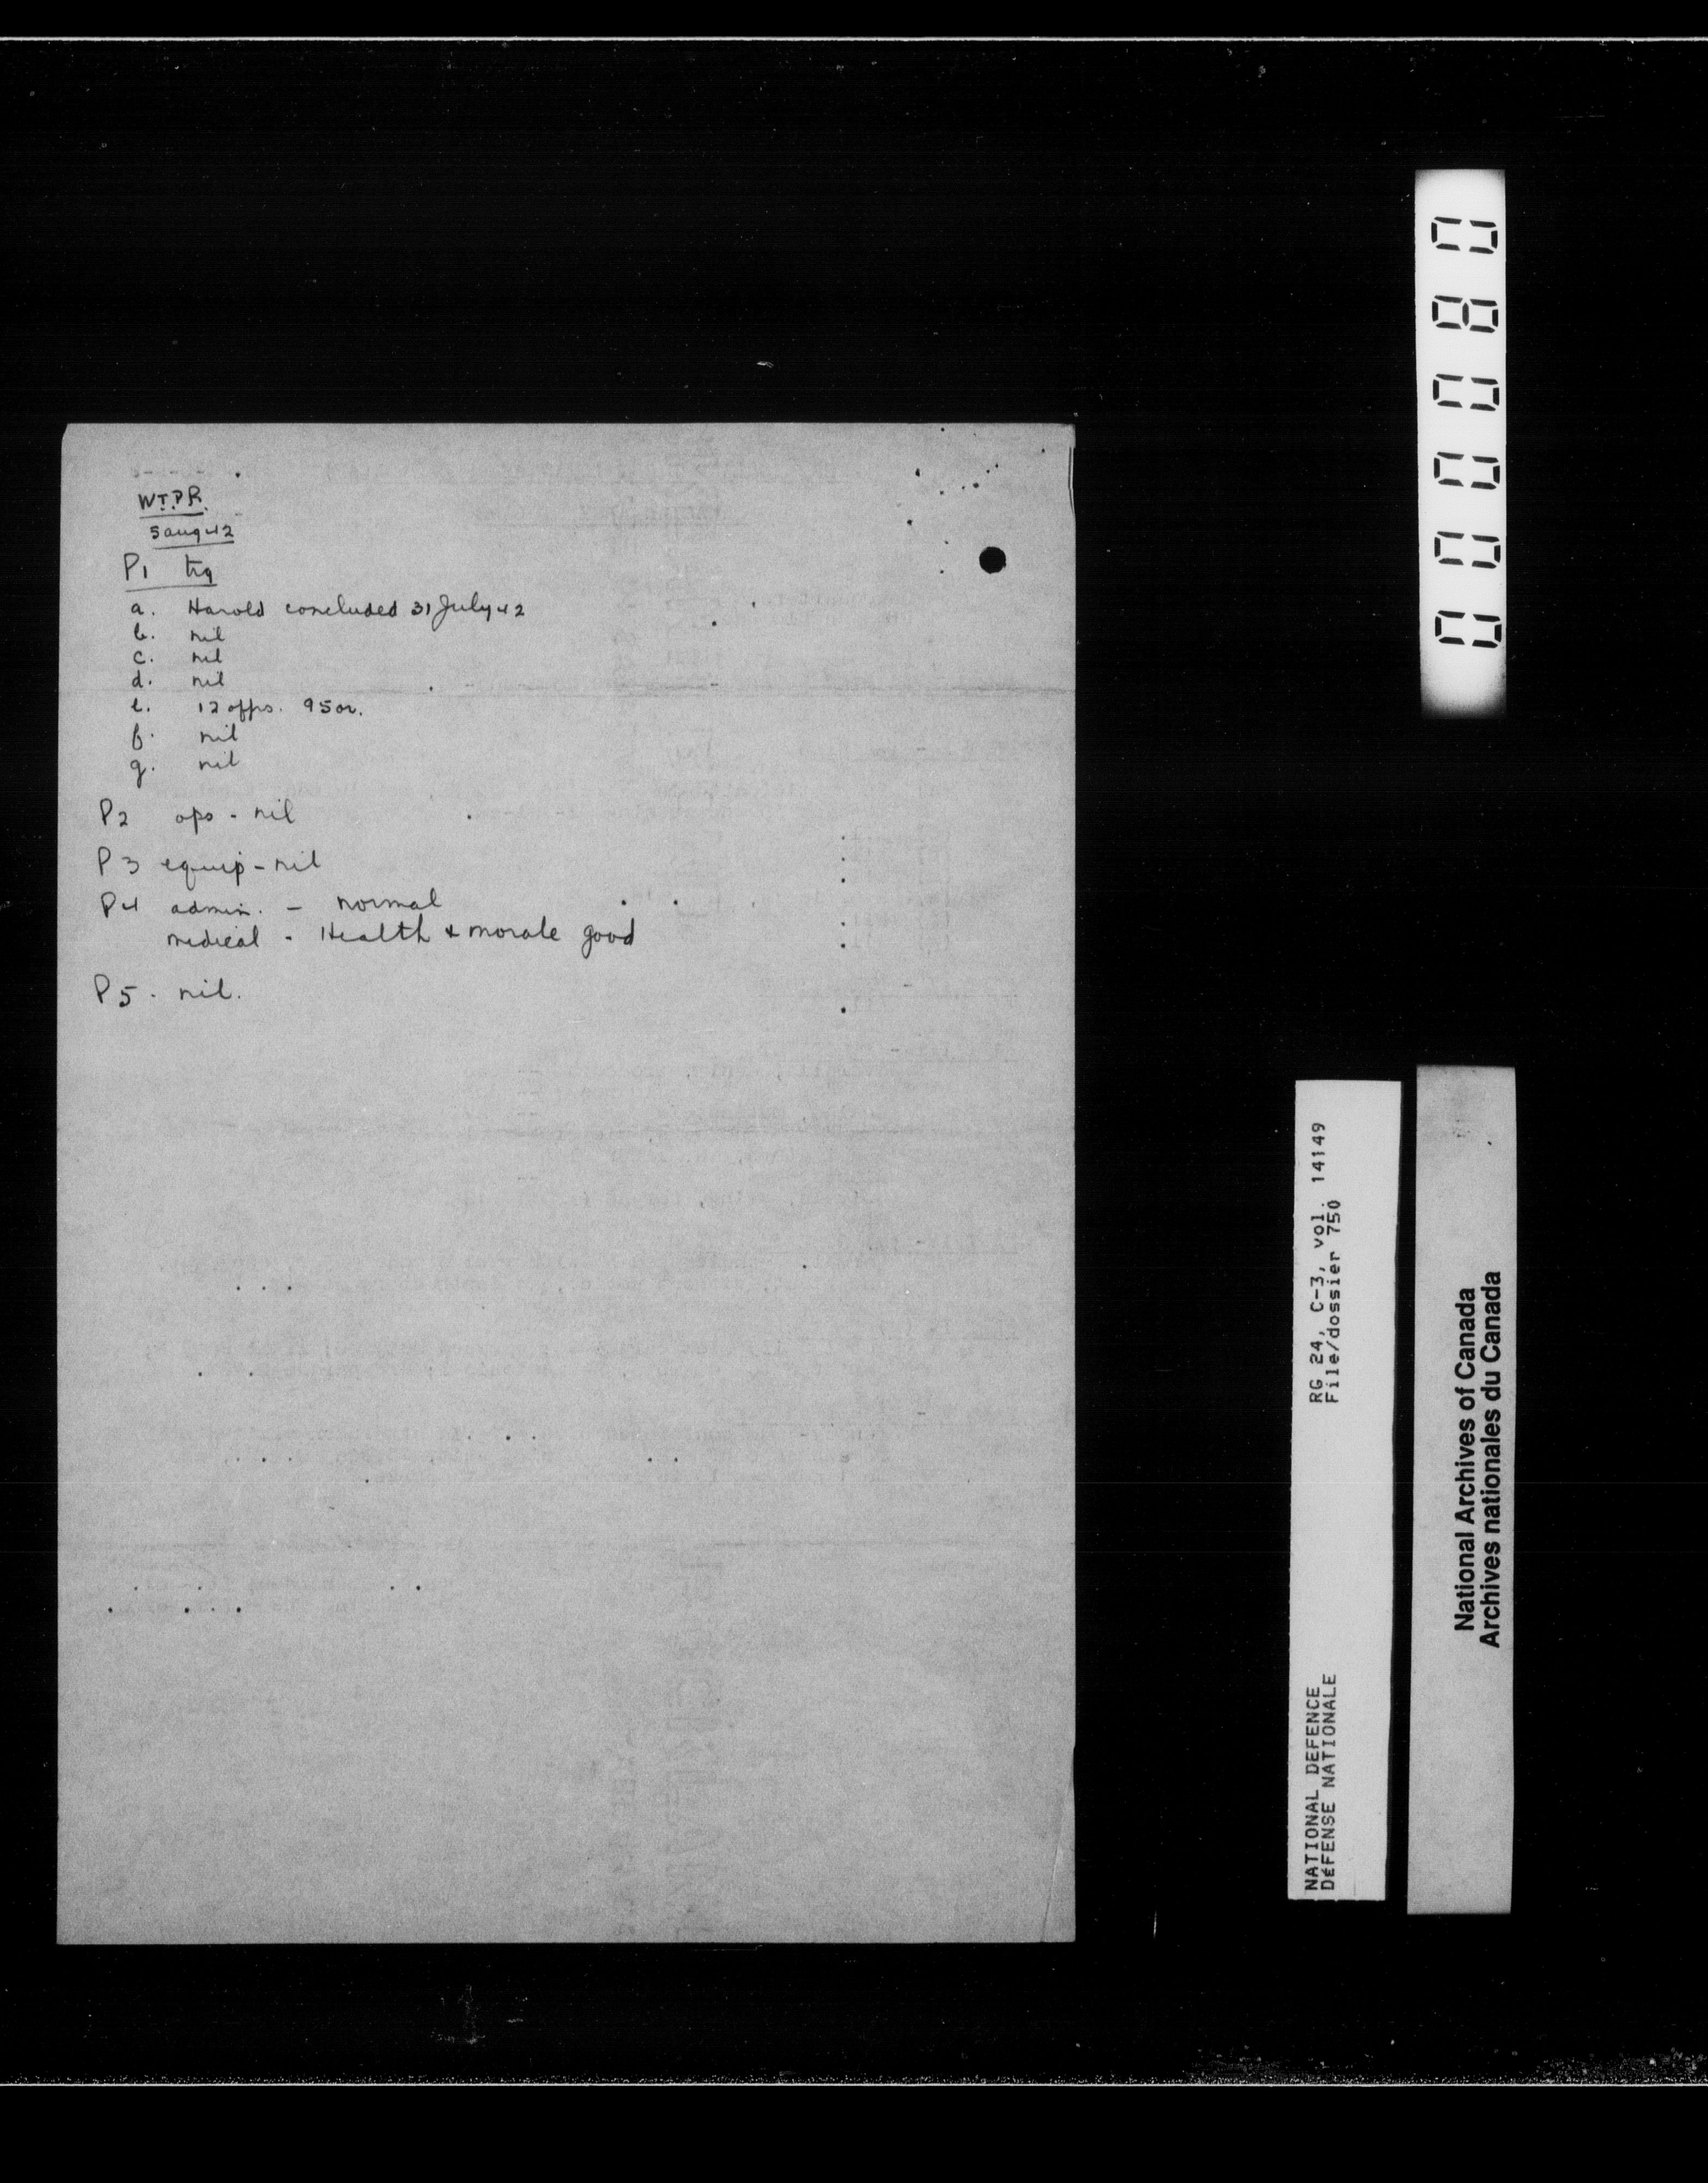 W.T.P.R.
5 aug 42
P1 trg
a. Harold concluded 31 July 42
b. nil
c. nil
d. nil
e. 12 offrs. 95 or.
f. nil
g. nil
P2 ops - nil
P3 equip - nil
P4 admin. - normal
medical - Health & morale good
P5 - nil.
000080
RG 24, C-3, vol. 14149
File/dossier 750
NATIONAL DEFENCE
DéFENSE NATIONALE
National Archives of Canada
Archives nationales du Canada